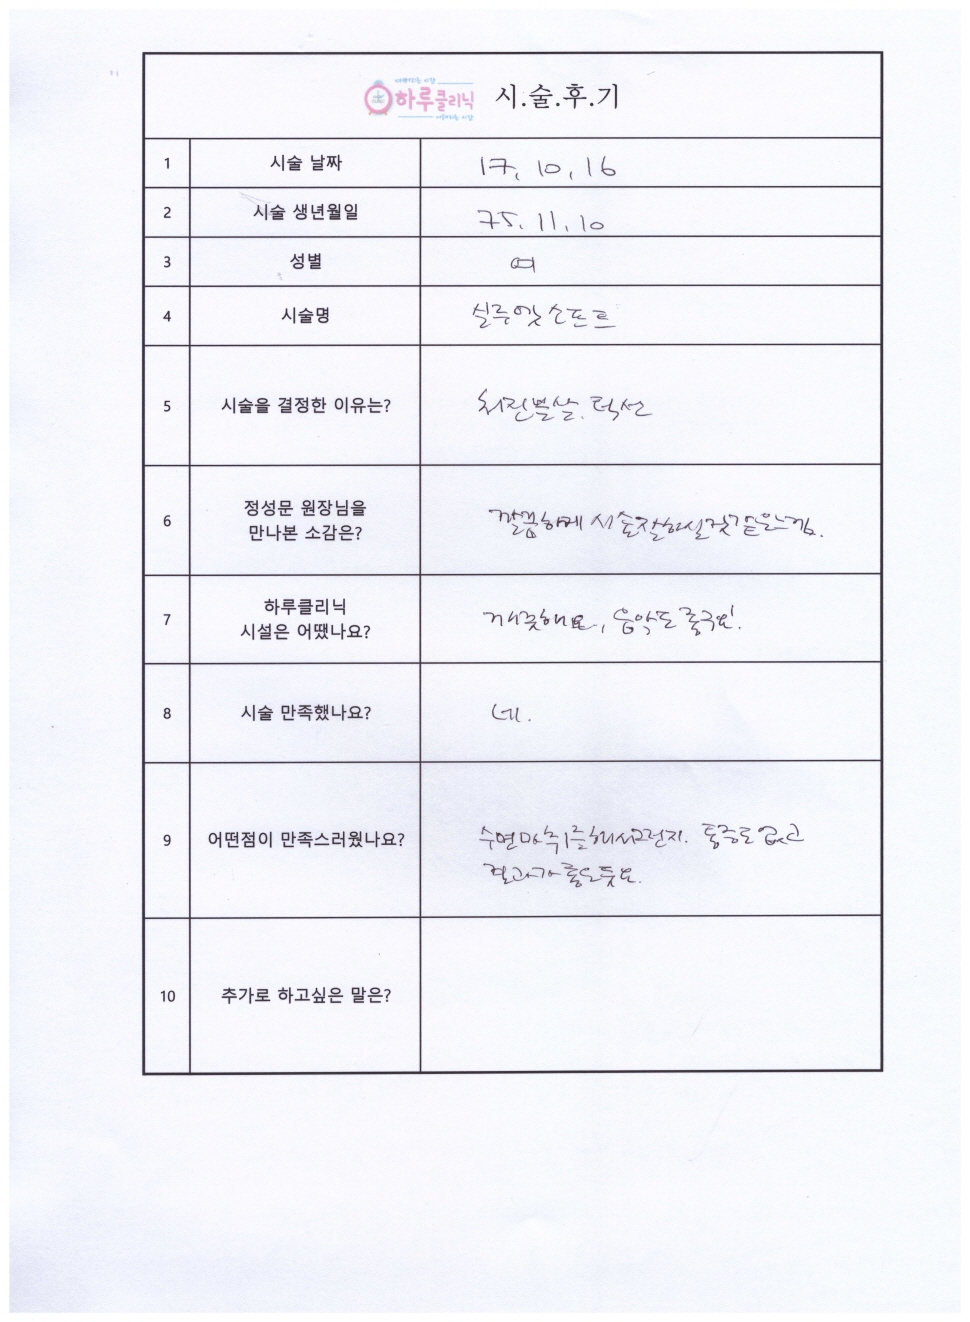 하루클리닉 시.술.후.기
1 시술 날짜 17. 10. 16
2 시술 생년월일 75. 11. 10
3 성별 여
4 시술명 실루엣소프트
5 시술을 결정한 이유는? 처진볼살. 턱선
6 정성문 원장님을
만나본 소감은? 깔끔하게 시술잘하실것같은느낌.
7 하루클리닉
시설은 어땠나요? 깨끗해요, 음악도 좋구요!
8 시술 만족했나요? 네.
9 어떤점이 만족스러웠나요? 수면마취를해서그런지. 통증도 없고
결과가 좋은듯요.
10 추가로 하고싶은 말은?